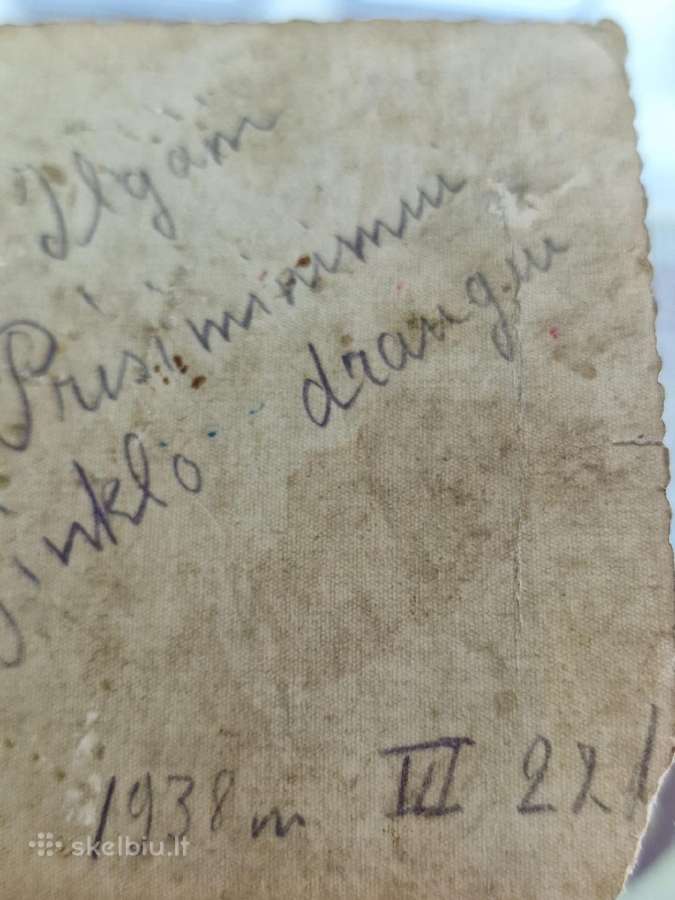 Ilgam
Prisiminimui
Ginklo draugui
1938 m VII 22/
skelbiu.lt